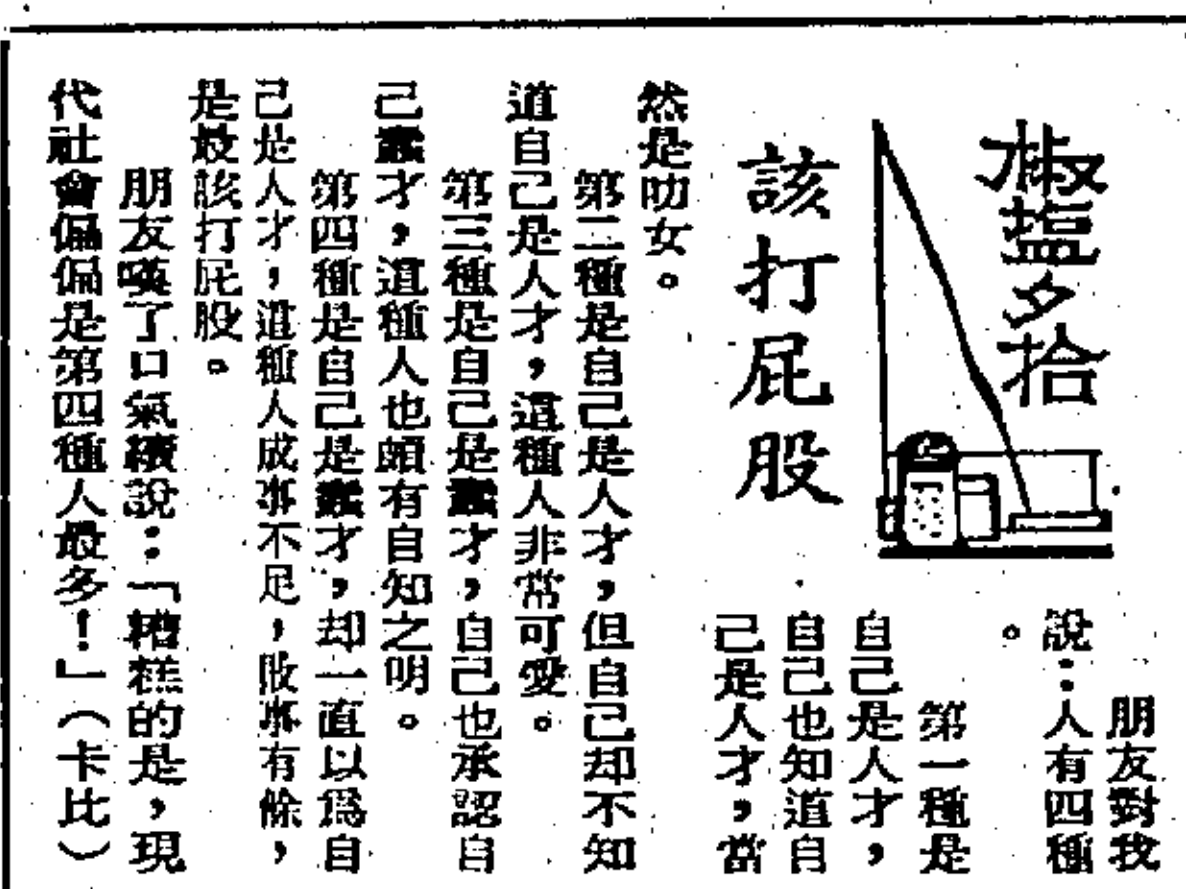 椒塩夕拾
該打屁股
朋友對我
說：人有四種
。
第一種是
自己是人才，
自己也知道自
己是人才，當
然是叻女。
第二種是自己是人才，但自己却不知
道自己是人才，這種人非常可愛。
第三種是自己是蠢才，自己也承認自
己蠢才，這種人也頗有自知之明。
第四種是自己是蠢才，却一直以爲自
己是人才，這種人成事不足，敗事有餘，
是最該打屁股。
朋友嘆了口氣續說：「糟糕的是，現
代社會偏偏是第四種人最多！」（卡比）